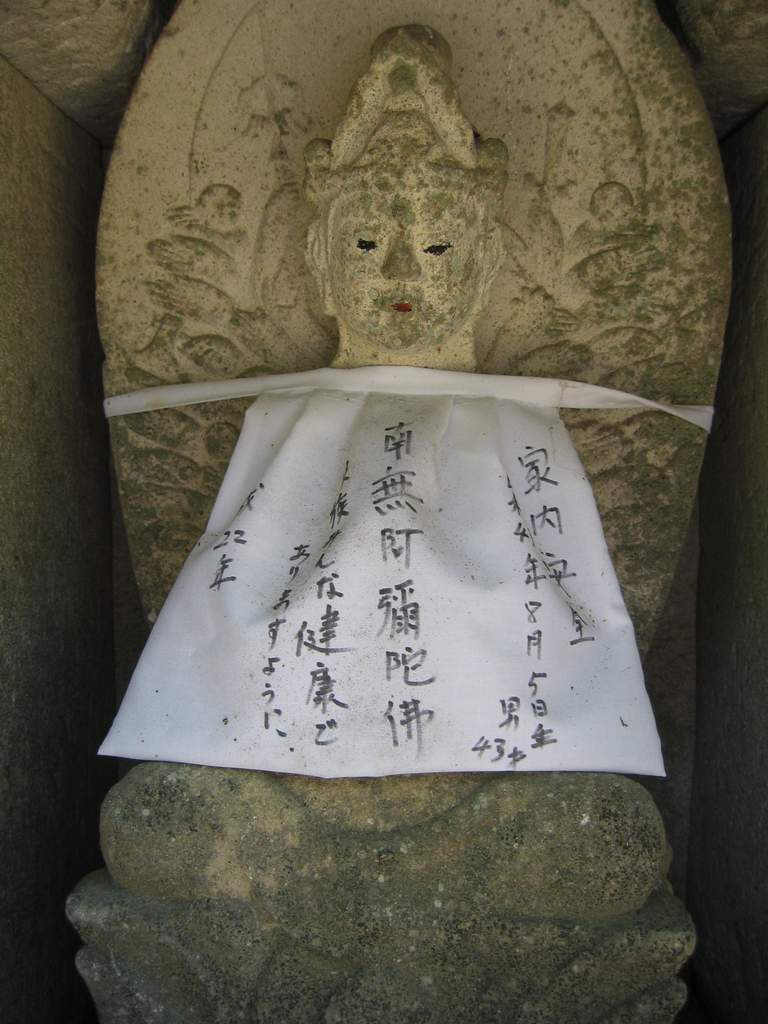 家内安全
年8月5日生
男43才
南無阿彌陀佛
んな健康で
ありますように、
成22年